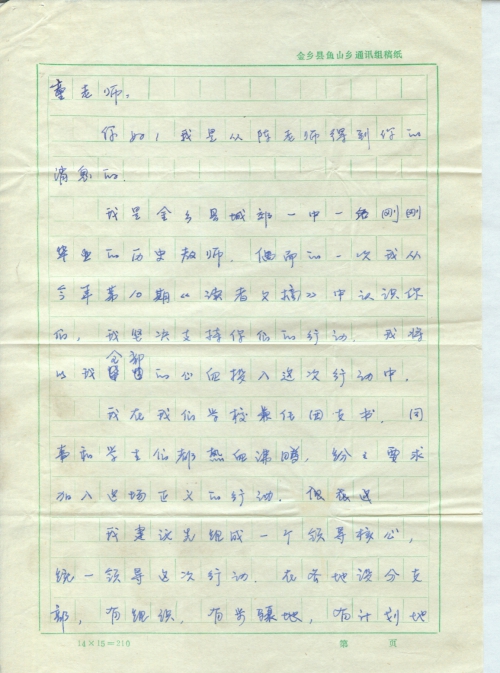 金乡县鱼山乡通讯组稿纸
童老师:
你好!我是从陈老师得到你的
消息的.
我是金乡县城郊一中一名刚刚
毕业的历史教师. 偶而的一次我从
今年第10期《读者文摘》中认识你
的, 我坚决支持你们的行动. 我将
以我全部的心血投入这次行动中.
我在我们学校兼任团支书. 同
事和学生们都热血沸腾, 纷纷要求
加入这场正义的行动.
我建议先组成一个领导核心,
统一领导这次行动. 在各地设分支
部, 有组织, 有步骤地, 有计划地
14×15=210 第 页